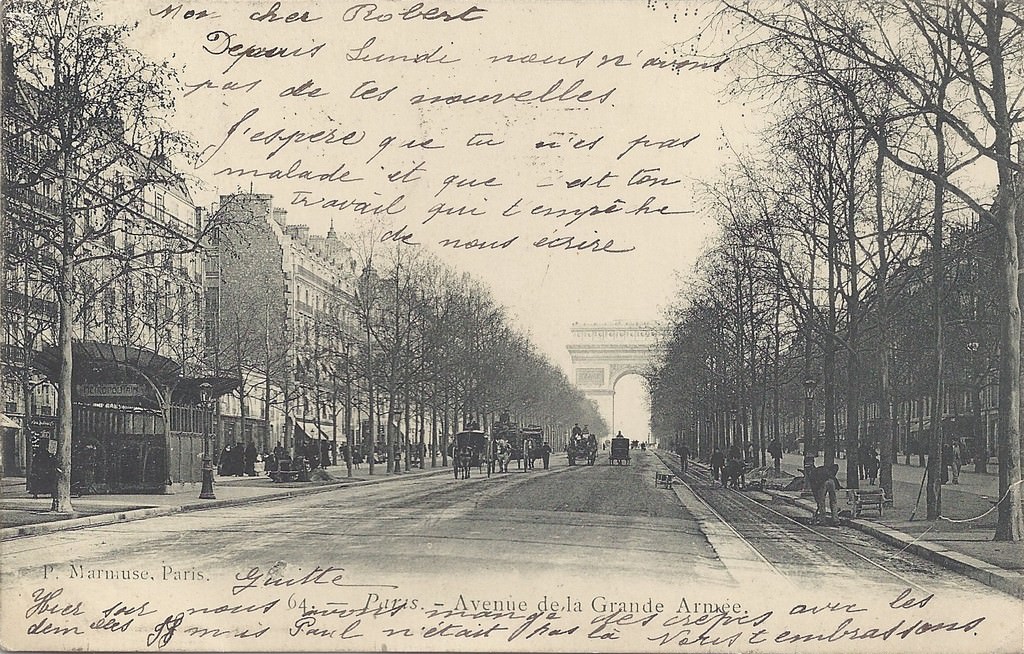 Mon cher Robert
Depuis Lundi nous n'avons
pas de tes nouvelles.
J'espère que tu n'es pas
malade et que c'est ton
travail qui t'empêche
de nous écrire
METROPOLITAIN
P. Marmuse, Paris.
Guitte
64 Paris. - Avenue de la Grande Armée.
Hier soir nous avons mangé des crepes avec les
demelles mais Paul n'était pas là Nous t'embrassons.